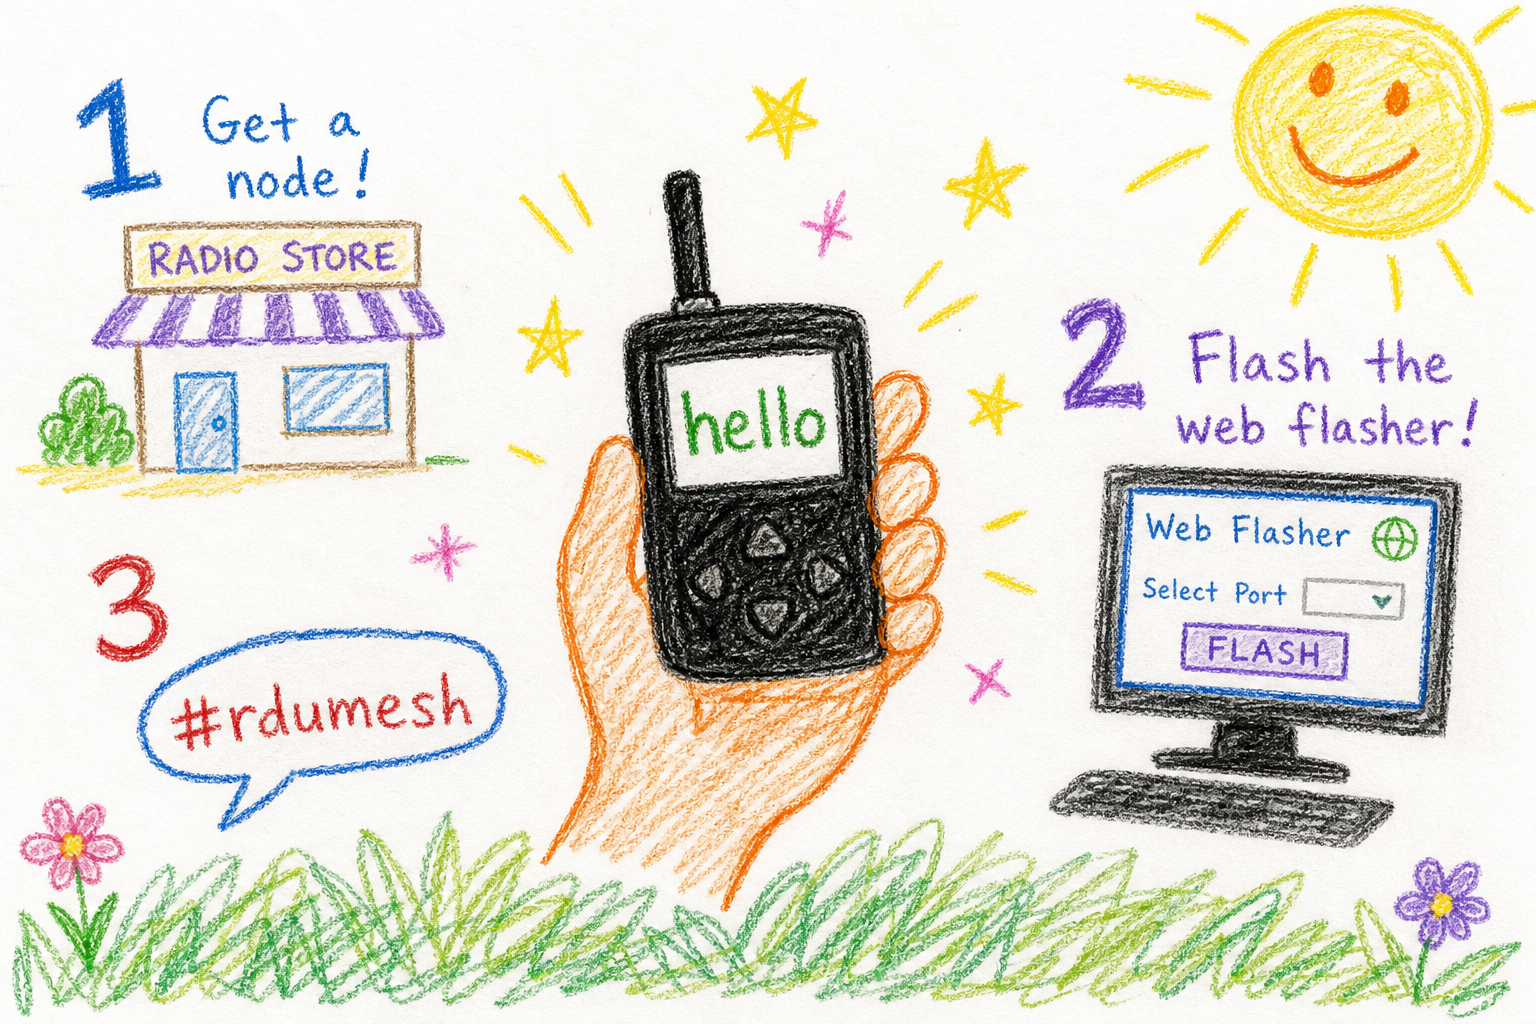 1
Get a
node!
RADIO STORE
hello
2
Flash the
web flasher!
Web Flasher
Select Port
FLASH
3
#rdumesh